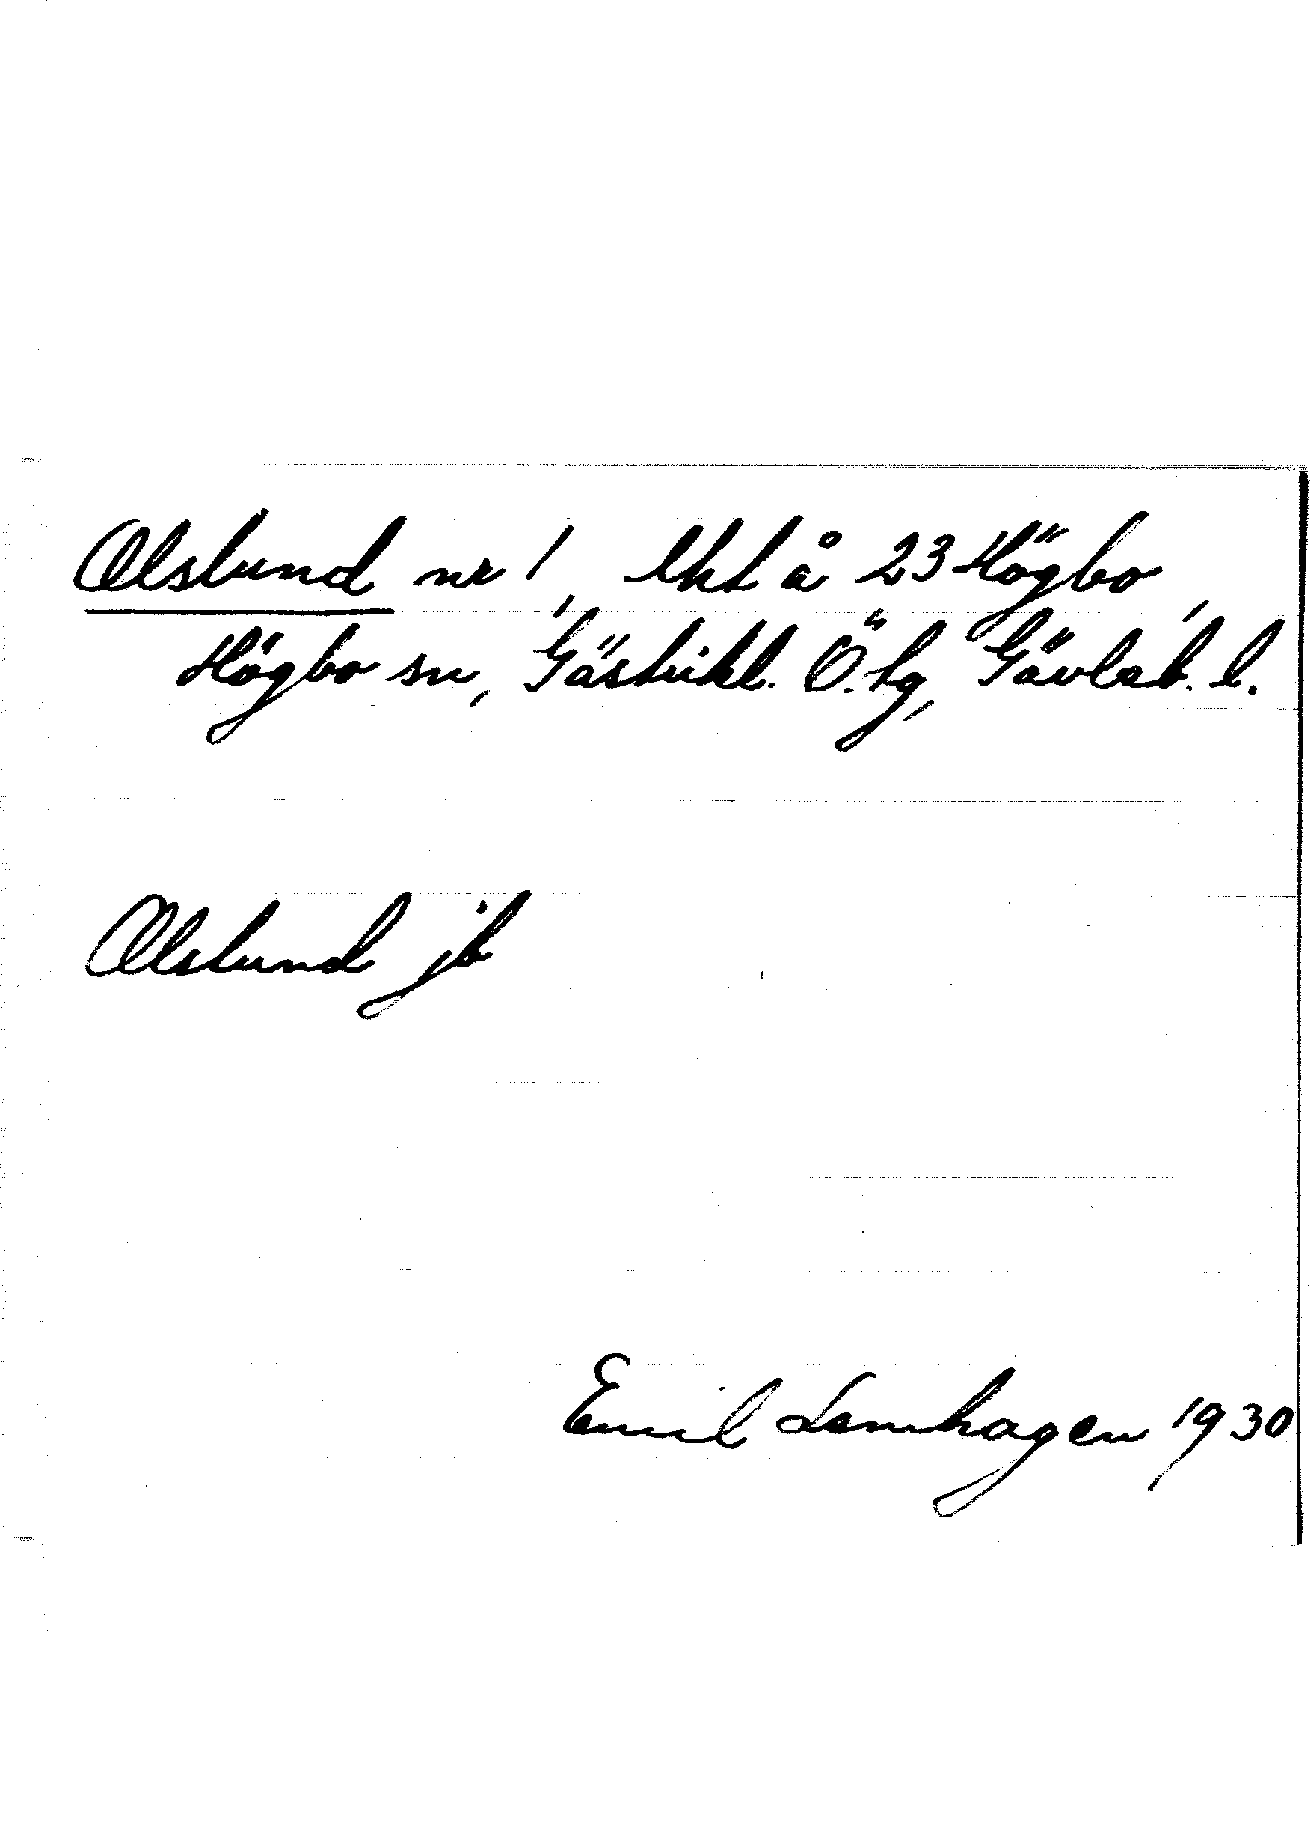 Olslund nr 1, lht å 23 Högbo,
Högbo sn, Gästrikl. Ö. tg, Gävleb. l.
Olslund jb
Emil Lennhagen 1930